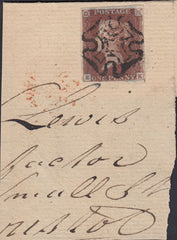 POSTAGE
ONE PENNY
Lewis
factor
Small St
ristol